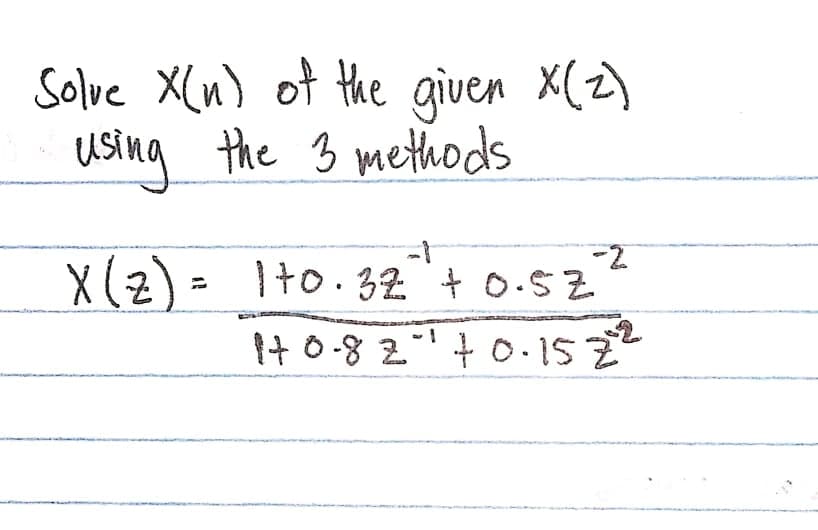 Solve x(n) of the given x(z)
using the 3 methods
x(z) = 1+0.3z⁻¹ + 0.5z⁻²
1+0.8z⁻¹ + 0.15z⁻²